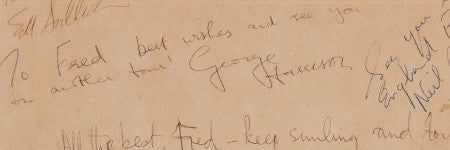 Ed Sullivan
To Fred best wishes and see you
on another tour! George
Harrison
See you
England
Neil
All the best, Fred – keep smiling and